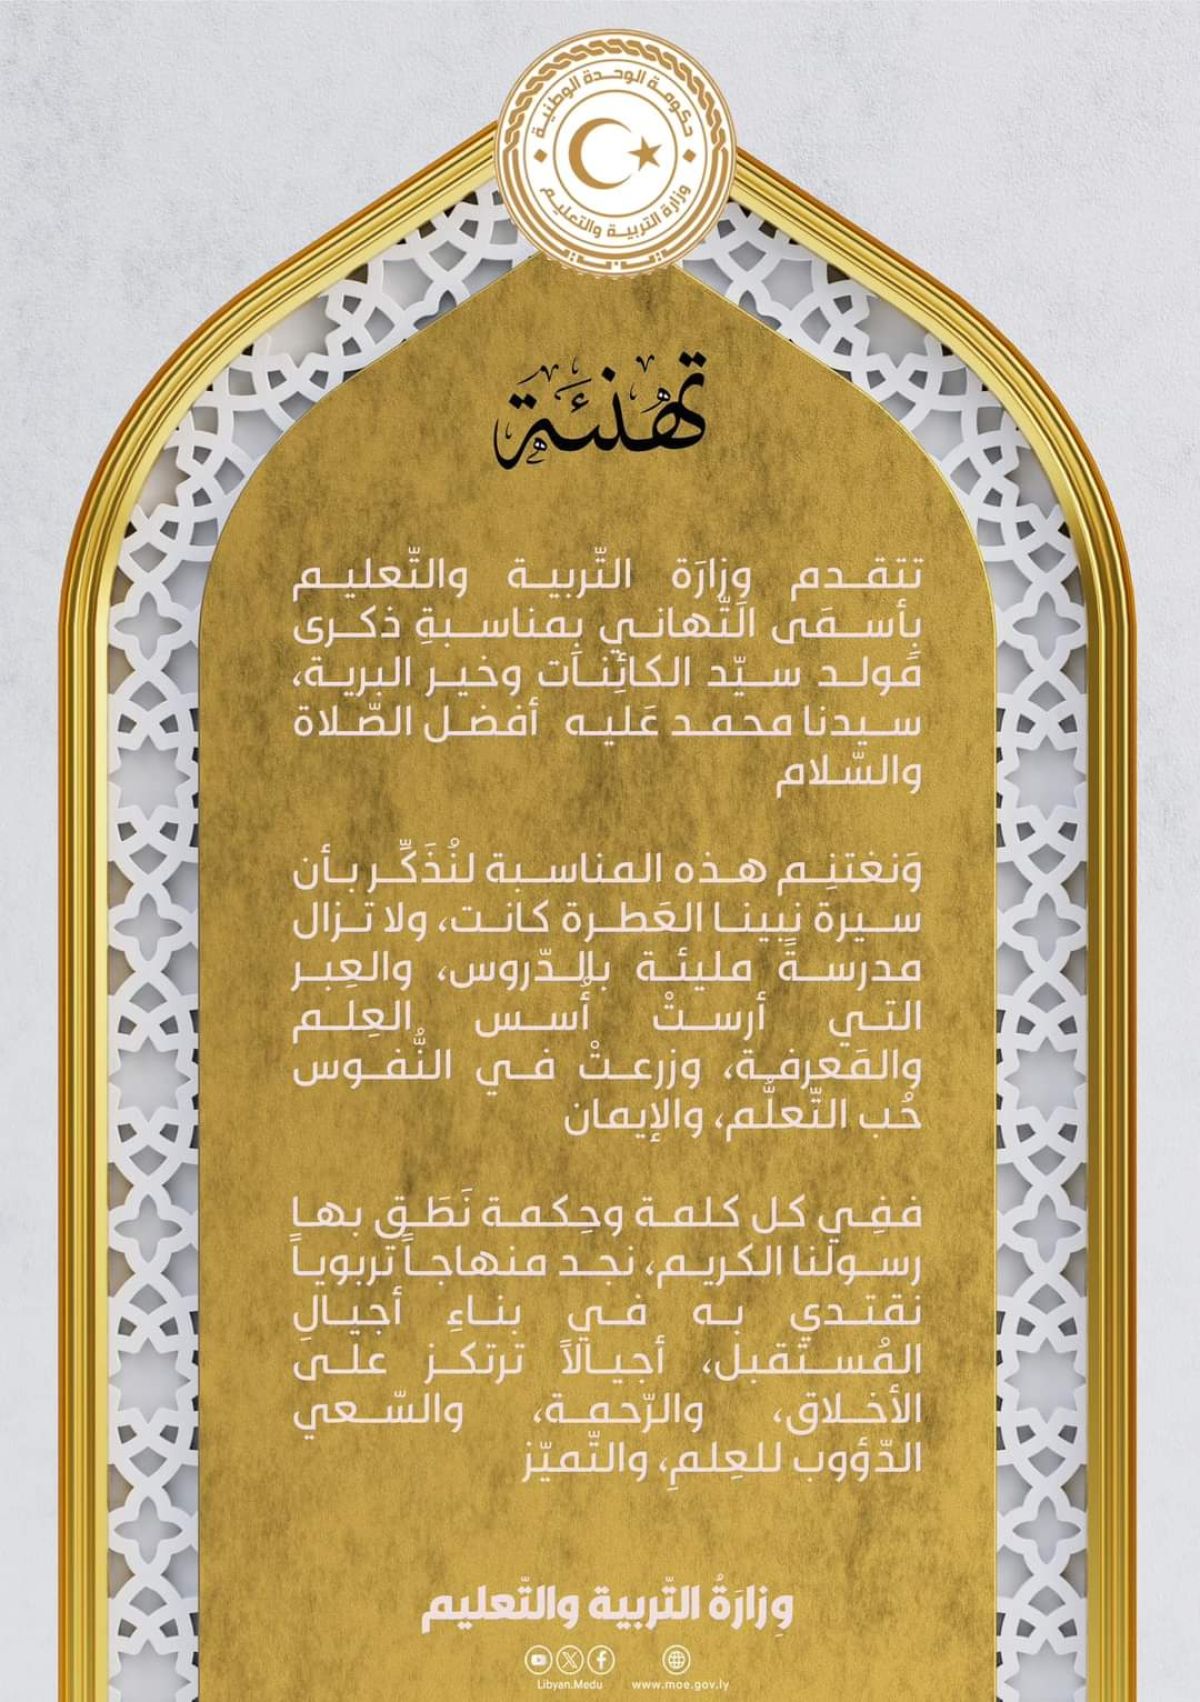 حكومة الوحدة الوطنية
وزارة التربية والتعليم
تهنئة
تتقدم وزارَة التّربية والتّعليم
بأسمَى التّهاني بمناسبةِ ذكرى
مَولد سيّد الكائِنات وخير البرية،
سيدنا محمد عَليه أفضل الصّلاة
والسّلام
وَنغتنِم هذه المناسبة لنُذَكِّر بأن
سيرة نبينا العَطرة كانت، ولا تزال
مدرسةً مليئة بالدّروس، والعِبر
التي أرستْ أُسس العِلم
والمَعرفة، وزرعتْ في النُّفوس
حُب التّعلُّم، والإيمان
ففِي كل كلمة وحِكمة نَطَق بها
رسولنا الكريم، نجد منهاجاً تربوياً
نقتدي به في بناءِ أجيالِ
المُستقبل، أجيالاً ترتكز على
الأخلاق، والرّحمة، والسّعي
الدّؤووب للعِلمِ، والتّميّز
وِزارَةُ التّربية والتّعليم
Libyan.Medu www.moe.gov.ly